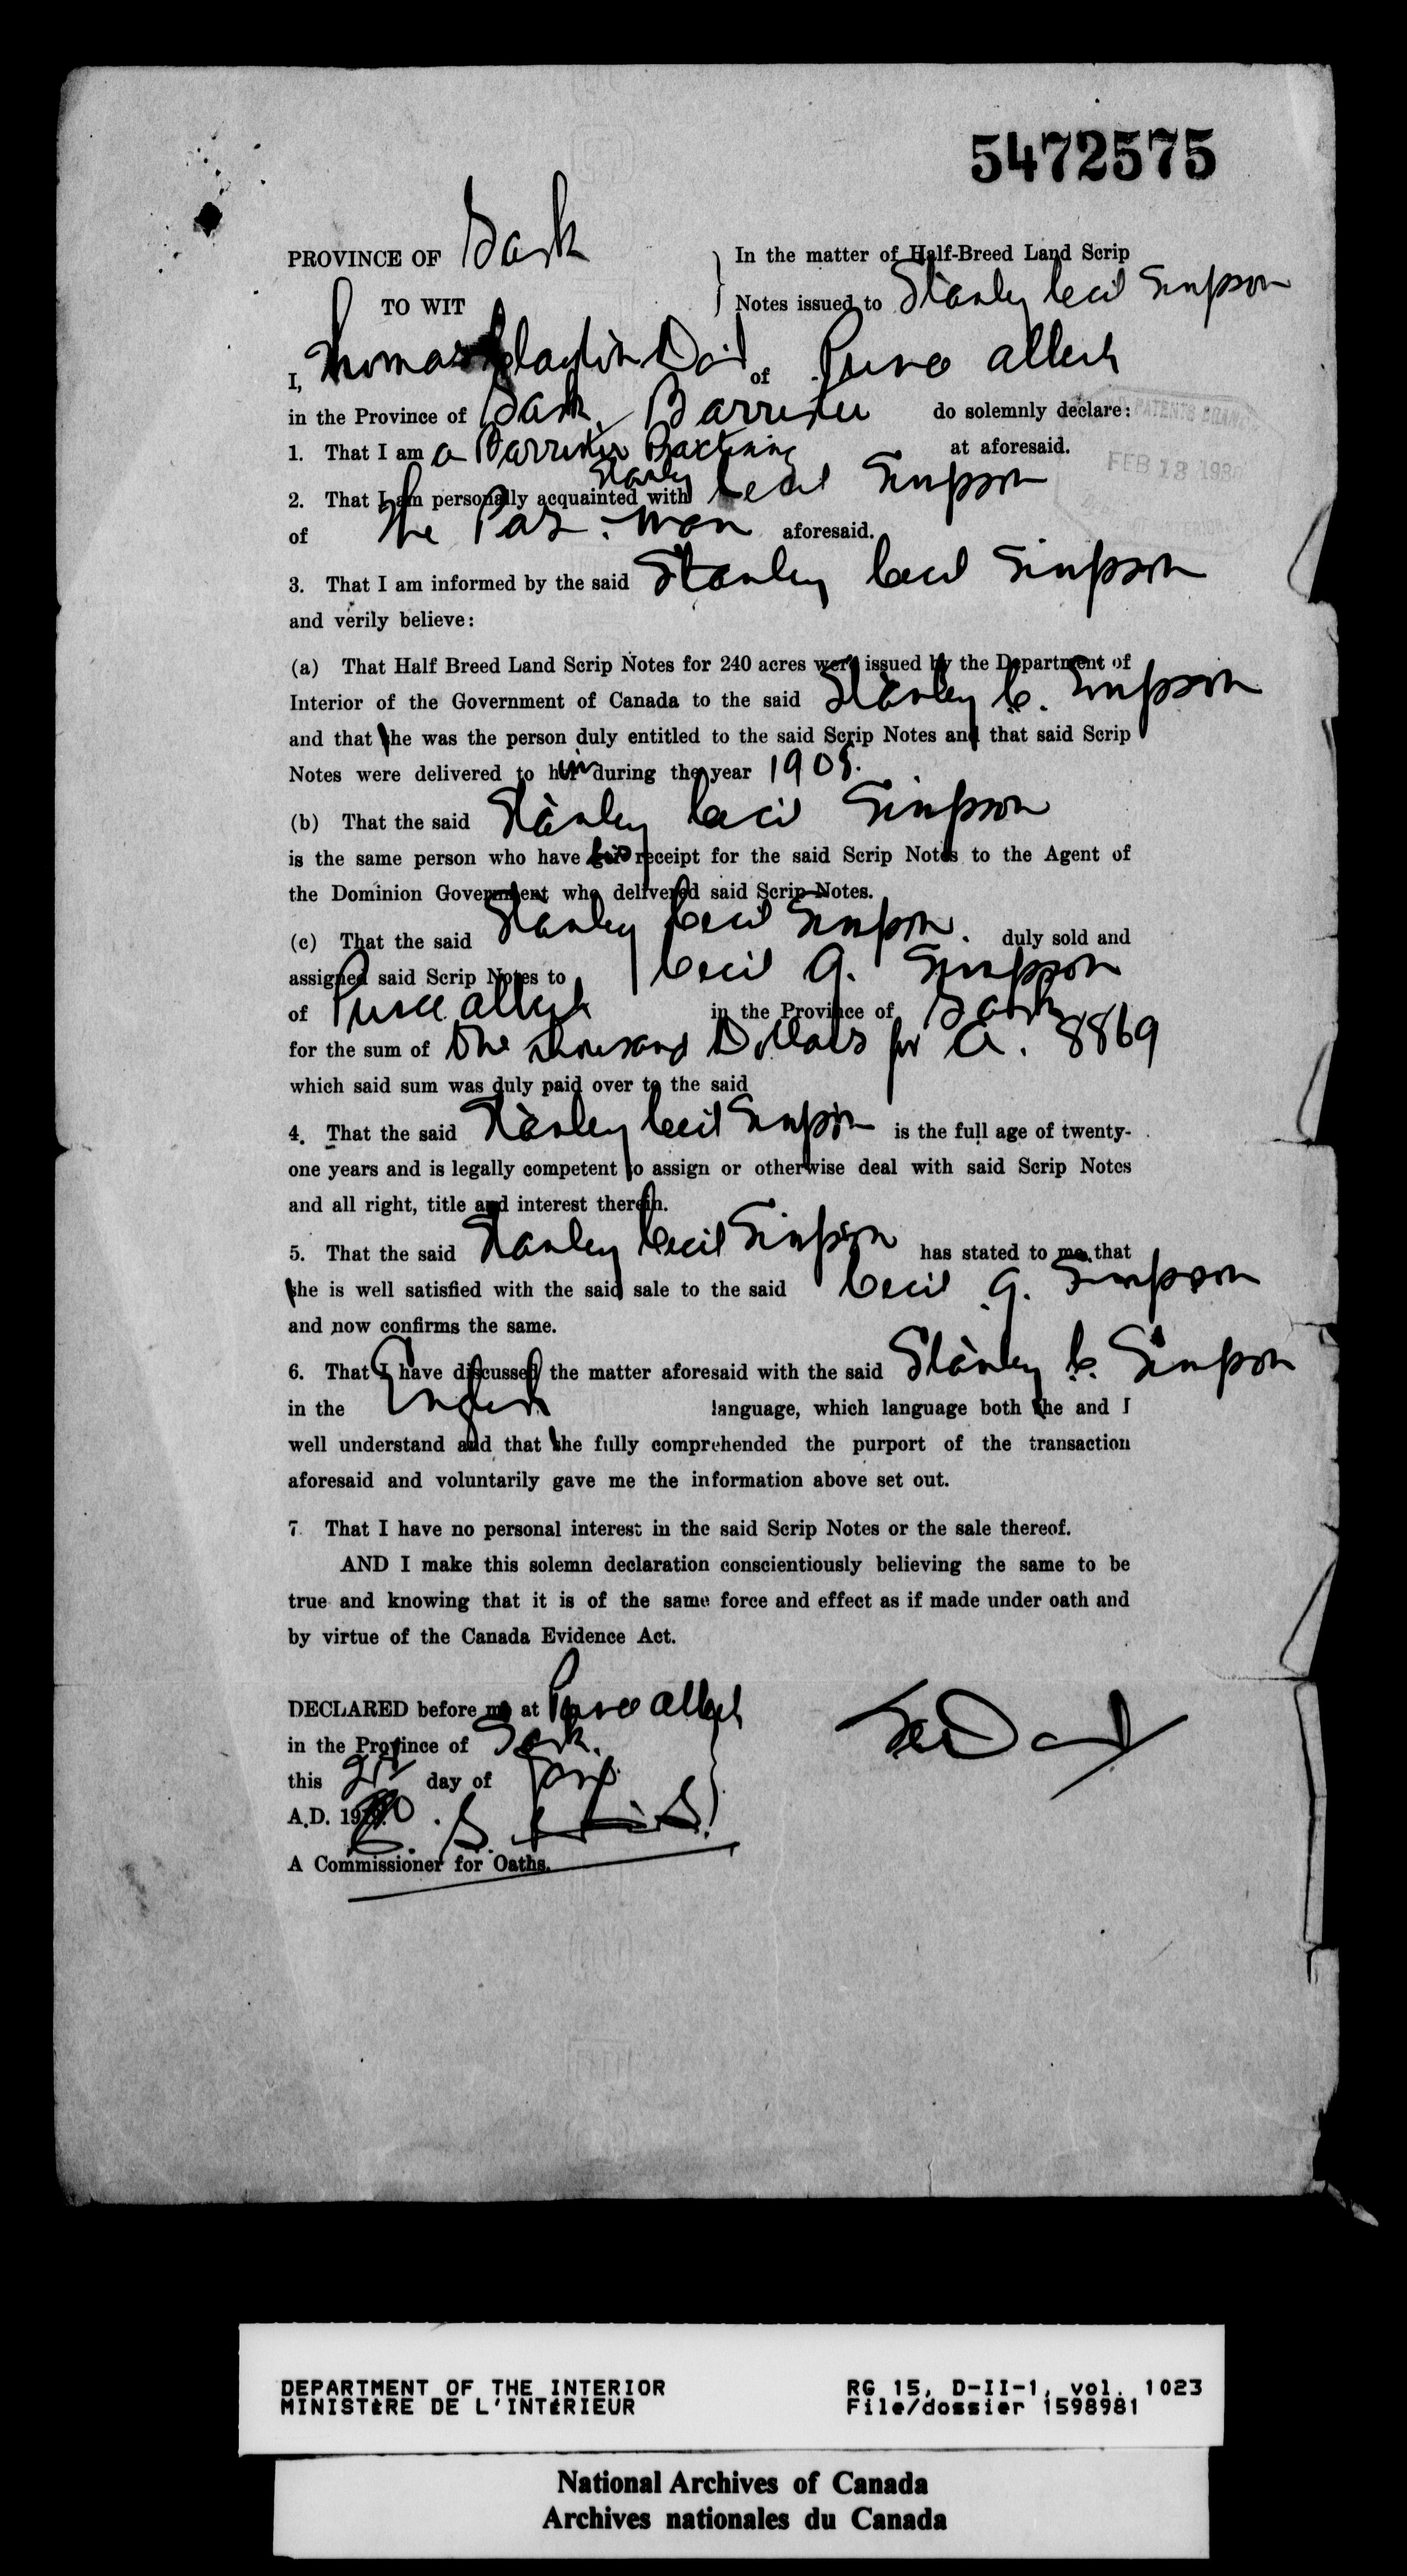 5472575
PROVINCE OF Sask
TO WIT
In the matter of Half-Breed Land Scrip
Notes issued to Stanley Cecil Simpson
I, Thomas Clayton Davis of Prince Albert
in the Province of Sask. Barrister do solemnly declare:
1. That I am a Barrister Practising at aforesaid.
2. That I am personally acquainted with Stanley Cecil Simpson
of The Pas. Man aforesaid.
3. That I am informed by the said Stanley Cecil Simpson
and verily believe:
(a) That Half Breed Land Scrip Notes for 240 acres were issued by the Department of
Interior of the Government of Canada to the said Stanley C. Simpson
and that he was the person duly entitled to the said Scrip Notes and that said Scrip
Notes were delivered to him during the year
(b) That the said Stanley Cecil Simpson
is the same person who have his receipt for the said Scrip Notes to the Agent of
the Dominion Government who delivered said Scrip Notes.
(c) That the said Stanley Cecil Simpson. duly sold and
assigned said Scrip Notes to Cecil G. Simpson
of Prince Albert in the Province of Sask
for the sum of One thousand Dollars for A. 8869
which said sum was duly paid over to the said
4. That the said Stanley Cecil Simpson is the full age of twenty-
one years and is legally competent to assign or otherwise deal with said Scrip Notes
and all right, title and interest therein.
5. That the said Stanley Cecil Simpson has stated to me that
he is well satisfied with the said sale to the said Cecil G. Simpson
and now confirms the same.
6. That I have discussed the matter aforesaid with the said Stanley C. Simpson
in the English language, which language both he and I
well understand and that he fully comprehended the purport of the transaction
aforesaid and voluntarily gave me the information above set out.
7 That I have no personal interest in the said Scrip Notes or the sale thereof.
AND I make this solemn declaration conscientiously believing the same to be
true and knowing that it is of the same force and effect as if made under oath and
by virtue of the Canada Evidence Act.
DECLARED before me at Prince Albert
in the Province of Sask.
this 21st day of Jany.
A.D. 19
A Commissioner for Oaths.
PATENTS BRANCH
FEB 13 193
DEPARTMENT OF THE INTERIOR
MINISTÈRE DE L'INTÉRIEUR
RG 15, D-II-1, vol. 1023
File/dossier 1598981
National Archives of Canada
Archives nationales du Canada